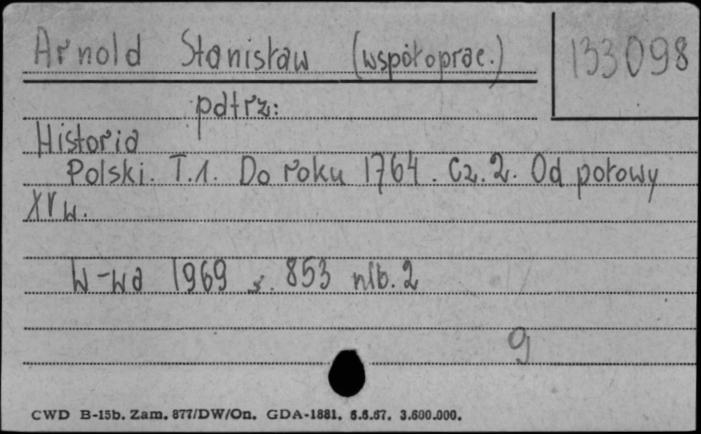 Arnold Stanisław (współoprac.) 133098
patrz:
Historia
Polski. T.1. Do roku 1764. Cz. 2. Od połowy
XV w.
W-wa 1969 s. 853 nlb. 2
g
CWD B-15b. Zam. 877/DW/On. GDA-1881. 6.6.67. 3.600.000.